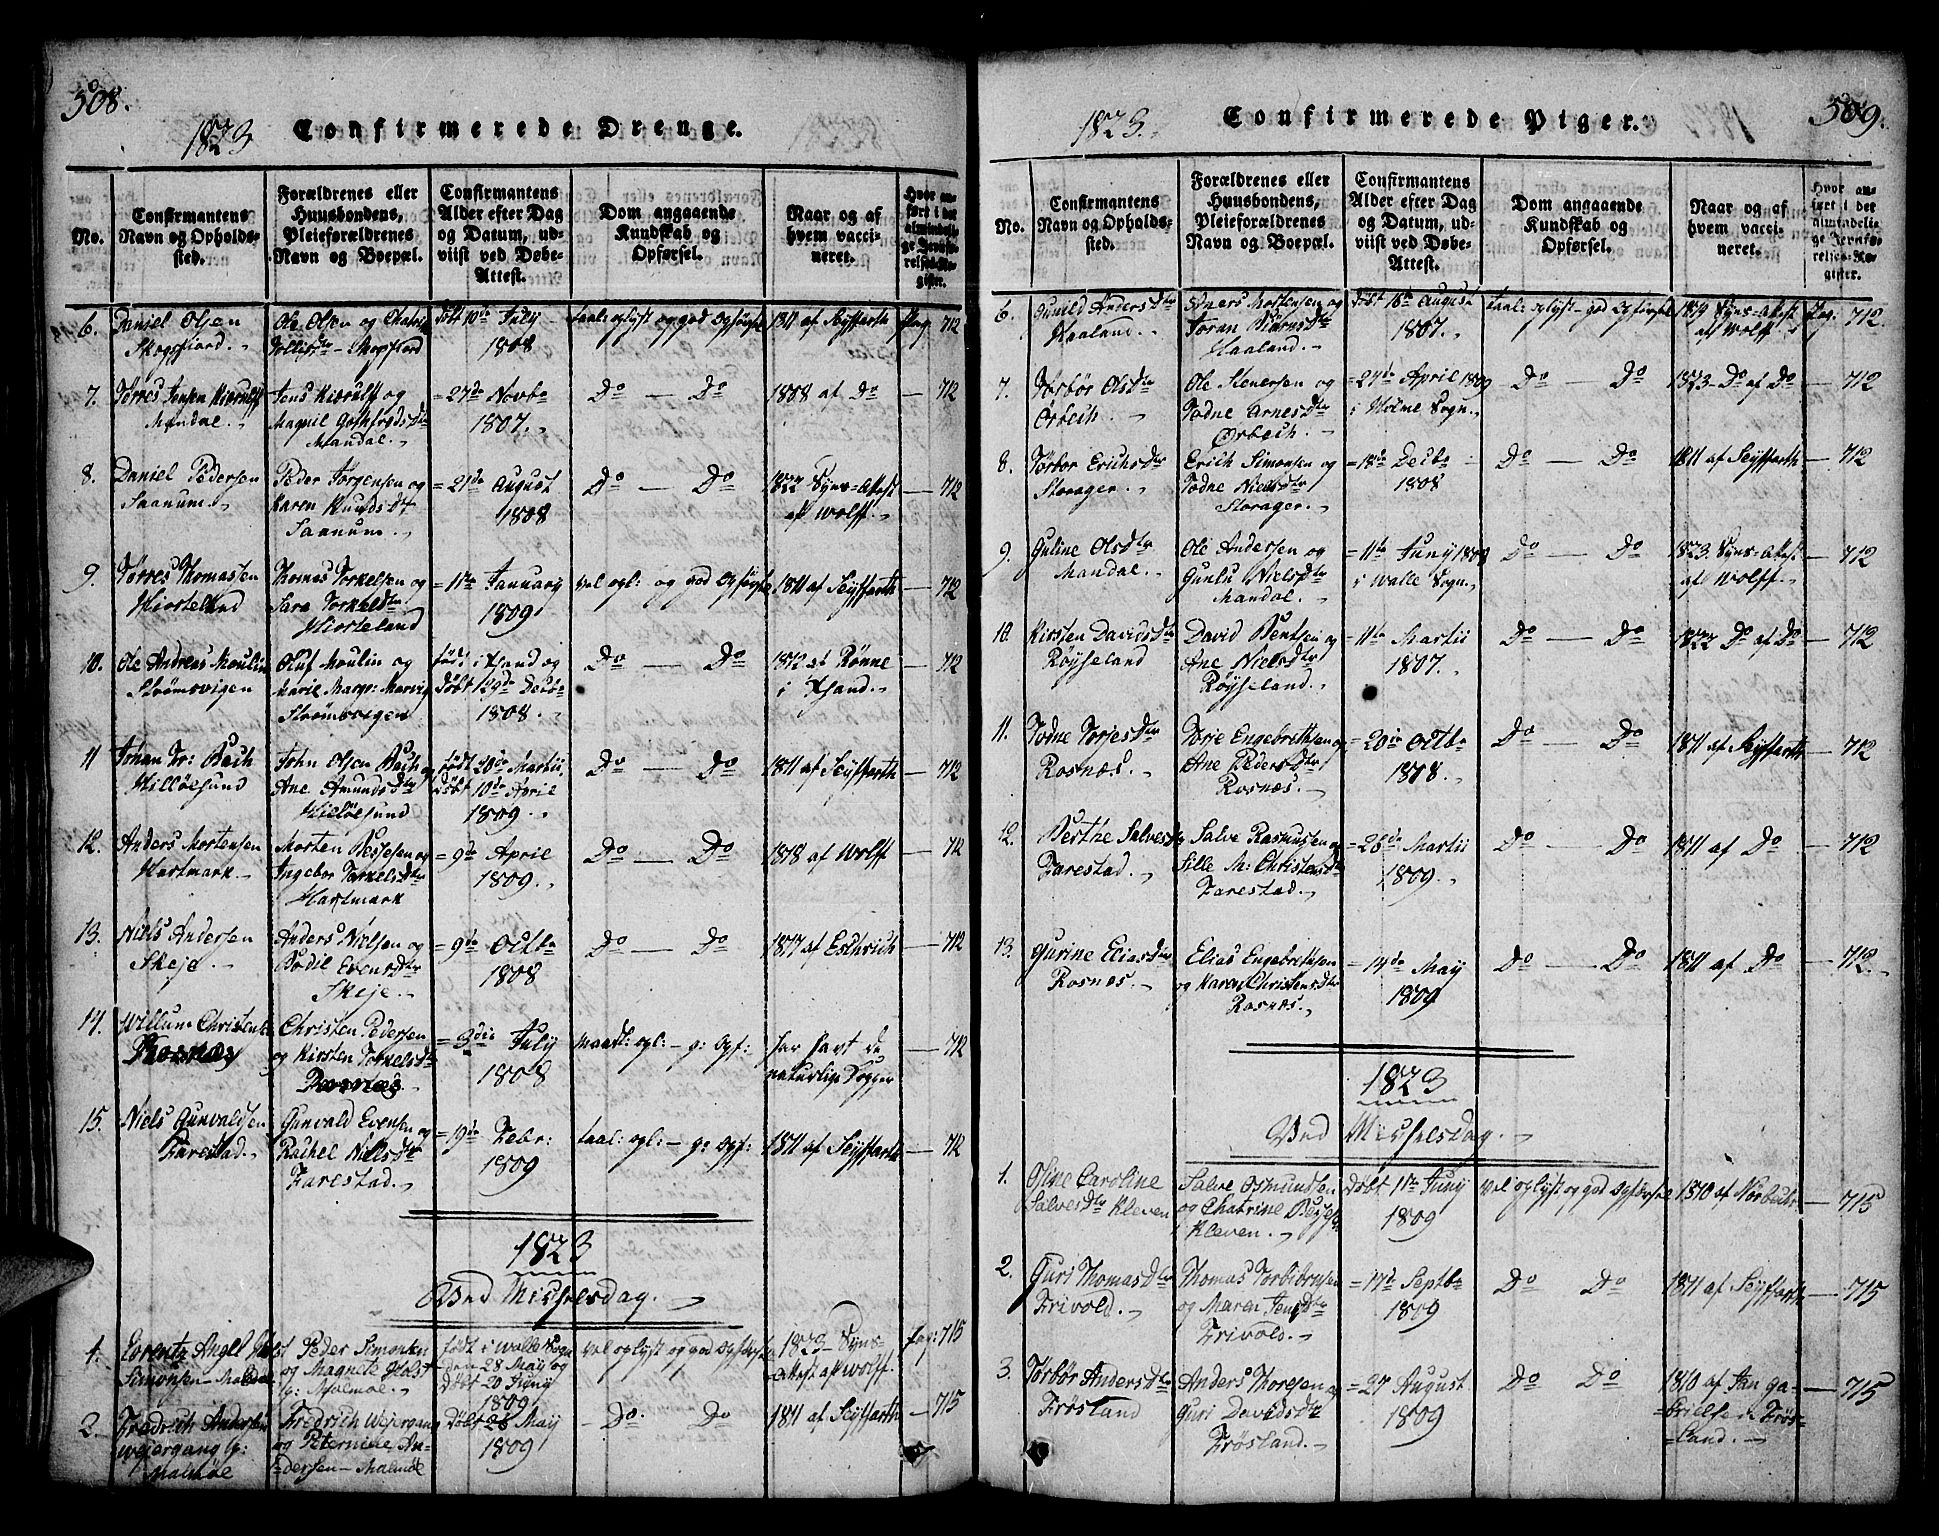 508.
1823
Confirmerede Drenge.
No.
Confirmantens
Navn og Opholds-
sted.
Forældrenes eller
Huusbondens,
Pleieforældrenes
Navn og Boepæl.
Confirmantens
Alder efter Dag
og Datum, ud-
viist ved Døbe-
Attest.
Dom angaaende
Kundskab og
Opførsel.
Naar og af
hvem vacci-
neret.
Hvor an-
ført i det
almindeli-
ge Jevnfø-
relses-Re-
gister.
6. Daniel Olsen
Ole Olsen og
døbt 10de July
taal: oplyst og god Opførsel
1811 af Seyffarth
Pag: 712
1808
7. Tørres Jensen Kierulff
Mandal.
Jens Kierulff og
Magnil Gothfredsdtr
Mandal.
= 27de Novbr
1807.
Do — Do
1808 af Do
— 712
8. Daniel Pedersen
Saanum.
Peder Jørgensen og
Karen Knudsdtr
Saanum.
= 21de August
1808
Do — Do
1822 Syns-Attest
af Wolff.
— 712
9. Tørres Thomassen
Hiorteland
Thomas Torkelsen og
Sara Torkeldtr
Hiorteland
= 11te January
1809
vel opl: og god Opførsel
1811 af Seyffarth
— 712
10. Ole Andreas Moulin
Strømsvigen
Oluf Moulin og
Marie Marg:
Strømsvigen
født i Xsand og
døbt 29de Decbr
1808.
Do — Do
1812 af Rønne
i Xsand.
— 712
11 Johan Fr: Bach
Hilløesund
John Olsen Bach og
Ane Amundsdtr
Hilløesund
født 20de Martii,
døbt 10de April
1809.
Do — Do
1811 af Seyffarth
— 712
12. Anders Mortensen
Hartmark
Morten Bessesen og
Ingebor Torkelsdtr
Hartmark
= 9de April
1809.
Do — Do
1818 af Wolff
— 712
13. Niels Andersen
Skeje.
Anders Nielsen og
Bodil Evensdtr
Skeje.
= 9de Octbr
1808
Do — Do
1817 af Eschrich
— 712
14. Willum Christens
Rosnæs
Christen Pedersen
og Kirsten Torkelsdtr
Rosnæs
= 3die July
1808
maadl: opl: — g: Opf:
har havt de
naturlige Kopper
— 712
15. Niels Gunvaldsen
Farestad.
Gunvald Evensen og
Rachel Nielsdtr
Farestad.
= 19de Febr:
1809
taal: opl: — g: Opf:
1811 af Seyffarth
— 712
1823
Ved Michelsdag.
1. Lorentz Angel Holst
Simonsen — Malmøe
Peder Simonsen
og Magrete Holst
p: Malmøe.
født i Walle Sogn
den 28 May og
døbt 20 Juny
1809
vel oplyst og god Opførsel
1823 Syns-
Attest af Wolff.
Pag: 715
2. Fredrich Andersen
Wejergang p:
Malmøe
Fredrich Wejergang
og Peternille An-
dersen — Malmøe
døbt 28 May
1809
— Do. Do
1811 af Seyffarth
— 715
509.
1823.
Confirmerede Piger.
No.
Confirmantens
Navn og Opholds-
sted.
Forældrenes eller
Huusbondens,
Pleieforældrenes
Navn og Boepæl.
Confirmantens
Alder efter Dag
og Datum, ud-
viist ved Døbe-
Attest.
Dom angaaende
Kundskab og
Opførsel.
Naar og af
hvem vacci-
neret.
Hvor an-
ført i det
almindeli-
ge Jevnfø-
relses-Re-
gister.
6. Gunild Andersdtr
Haaland.
Anders Mortensen og
Joran Biørnsdtr
Haaland.
døbt 16de August
1807.
taal: oplyst — god Opførsel
1819 Syns-Attest
af Wolff
Pag: 712.
7. Torbør Olsdtr
Orbech
Ole Stenersen og
Todne Arnesdtr
Ørbech.
= 24de April 1809
i Holme Sogn.
Do — Do
1823 Do af Do
— 712
8. Torbor Erichsdtr
Storager.
Erich Simonsen og
Todne Nielsdtr
Storager.
= 18de Decbr
1808
Do — Do
1811 af Seyffarth
— 712
9. Guline Olsdtr
Mandal.
Ole Andersen og
Gunlu Nielsdtr
Mandal.
= 11te Juny 1809
i Walle Sogn.
Do — Do
1823 Syns-Attest
af Wolff.
— 712
10. Kirsten Davidsdtr
Røyseland
David Bentsen og
Ane Nielsdtr
Røyseland.
= 11te Martii
1807.
Do — Do
1822 Do af Do
— 712
11. Todne Torjesdtr
Rosnæs.
Torje Engebrethsen og
Ane Pedersdtr
Rosnæs.
= 20de Octbr
1808.
Do — Do
1811 af Seyffarth
— 712
12. Berthe Salvesdtr
Farestad.
Salve Rasmusen og
Sille M: Christensdtr
Farestad.
= 26de Martii
1809.
Do — Do
1811 af Do
— 712
13. Gurine Eliasdtr
Rosnæs.
Elias Engebrethsen
og Karen Christensdtr
Rosnæs.
= 14de May
1809
Do — Do
1811 af Do
— 712.
1823
Ved Michelsdag.
1. Osine Caroline
Salvesdtr Kleven
Salve Osmundsen
og Chatrine
Kleven.
døbt 11te Juny
1809
vel oplyst og god Opførsel
1810 af
— 715
2. Guri Thomasdtr
Frivold.
Thomas Torbiørnsen
og Maren Jensdtr
Frivold.
= 17de Septbr
1809
Do Do
1811 af Seyffarth
— 715
3. Torbør Andersdtr
Frösland
Anders Thoresen og
Guri Davidsdtr
Frösland.
= 27 August
1809
Do Do
1810 af Jan Ga-
brielsen Frös-
land.
— 715